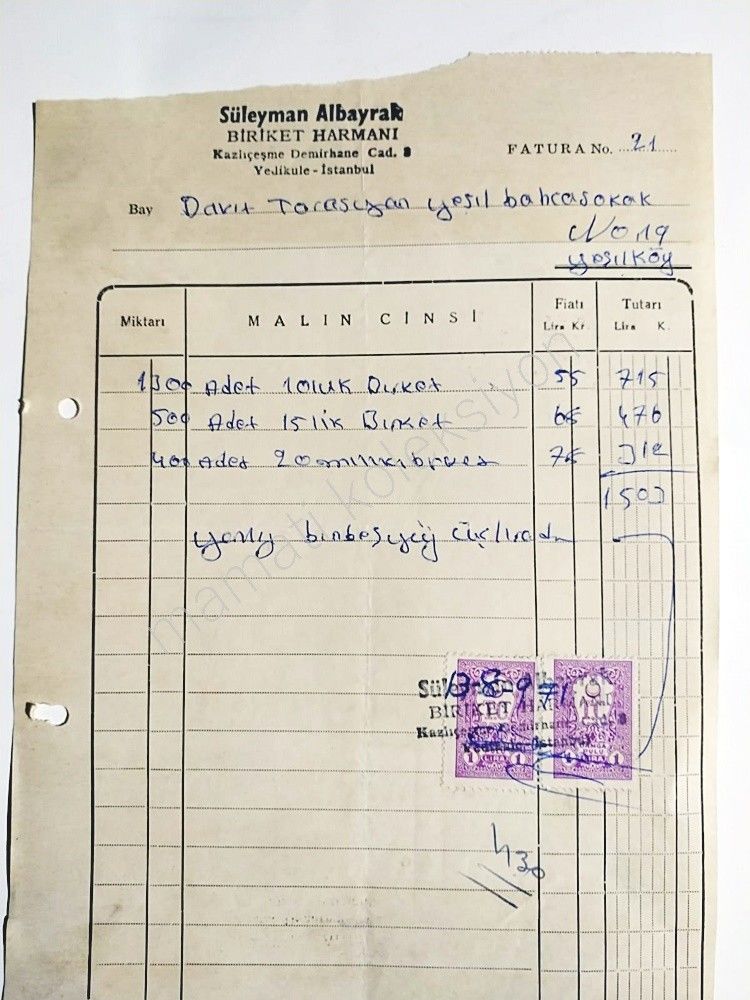 Süleyman Albayrak
BİRİKET HARMANI
Kazlıçeşme Demirhane Cad. 8
Yedikule - İstanbul
FATURA No. 21
Bay Davit Torasiyan yeşil bahca sokak
No 19
yeşilköy
Miktarı MALIN CİNSİ Fiatı Tutarı
Lira Kr. Lira K.
1300 Adet 10luk Birket 55 715
500 Adet 15lik Birket 476
400 Adet
1503
Yalnız binbeşyüz üçliradır
Süleyman Albayrak
13-8-971
BİRİKET HARMANI
Kazlıçeşme Demirhane Cad. 8
Yedikule - İstanbul
1 LİRA 1
1 LİRA 1
mamati koleksiyon